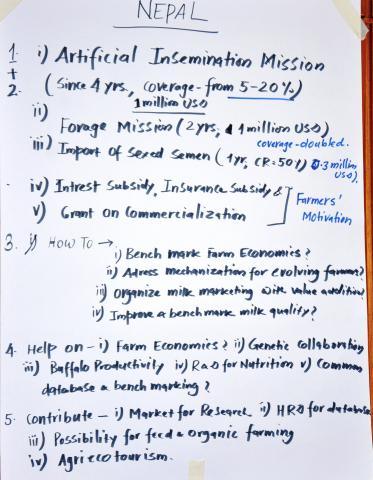 NEPAL
1. i) Artificial Insemination Mission
+
2. (Since 4 yrs, coverage - from 5-20%)
1 million USD
ii) Forage Mission (2 yrs, 1 million USD)
coverage-doubled.
iii) Import of Sexed Semen (1yr, CR=50%) 0.3 million USD).
iv) Intrest Subsidy, Insurance Subsidy &
v) Grant on Commercialization
Farmers'
Motivation
3. i) HOW TO →
i) Bench mark Farm Economics?
ii) Adress mechanization for evolving farmers?
iii) Organize milk marketing with value addition?
iv) Improve & benchmark milk quality?
4. Help on - i) Farm Economics? ii) Genetic collaboration
iii) Buffalo Productivity iv) R&D for Nutrition v) Common
database & bench marking?
5. Contribute - i) Market for Research ii) HRD for database
iii) Possibility for feed & organic farming
iv) Agri eco tourism.